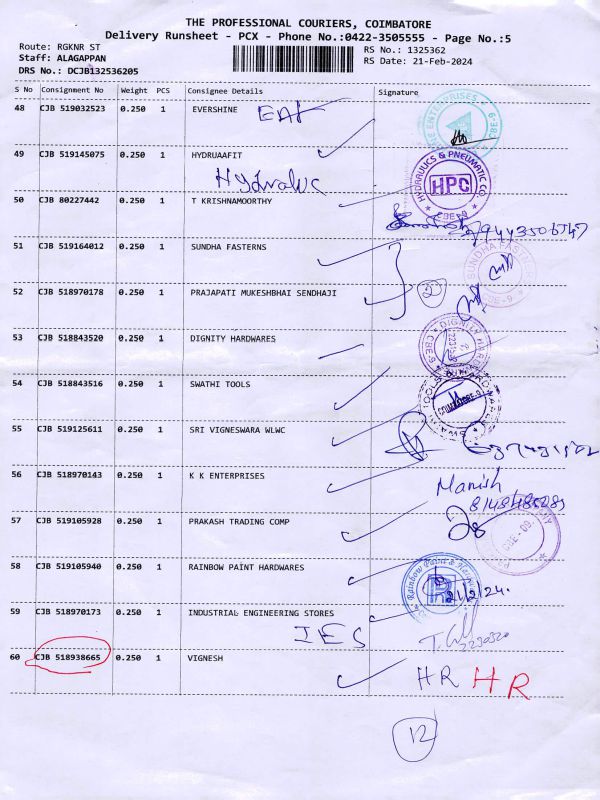 THE PROFESSIONAL COURIERS, COIMBATORE
Delivery Runsheet - PCX - Phone No.:0422-3505555 - Page No.:5
Route: RGKNR ST
RS No.: 1325362
Staff: ALAGAPPAN
RS Date: 21-Feb-2024
DRS No.: DCJB132536205
S No Consignment No Weight PCS Consignee Details Signature
48 CJB 519032523 0.250 1 EVERSHINE
ENTERPRISES
49 CJB 519145075 0.250 1 HYDRUAAFIT
HYDRAULICS & PNEUMATIC CO.
HPC
CBE-9
50 CJB 80227442 0.250 1 T KRISHNAMOORTHY
51 CJB 519164012 0.250 1 SUNDHA FASTERNS
SUNDHA FASTENER
52 CJB 518970178 0.250 1 PRAJAPATI MUKESHBHAI SENDHAJI
2
53 CJB 518843520 0.250 1 DIGNITY HARDWARES
DIGNITY
54 CJB 518843516 0.250 1 SWATHI TOOLS
55 CJB 519125611 0.250 1 SRI VIGNESWARA WLWC
56 CJB 518970143 0.250 1 K K ENTERPRISES
Manish
57 CJB 519105928 0.250 1 PRAKASH TRADING COMP
CBE-09
58 CJB 519105940 0.250 1 RAINBOW PAINT HARDWARES
Rainbow Paint &
21/2/24.
59 CJB 518970173 0.250 1 INDUSTRIAL ENGINEERING STORES
IES
60 CJB 518938665 0.250 1 VIGNESH
HR HR
12